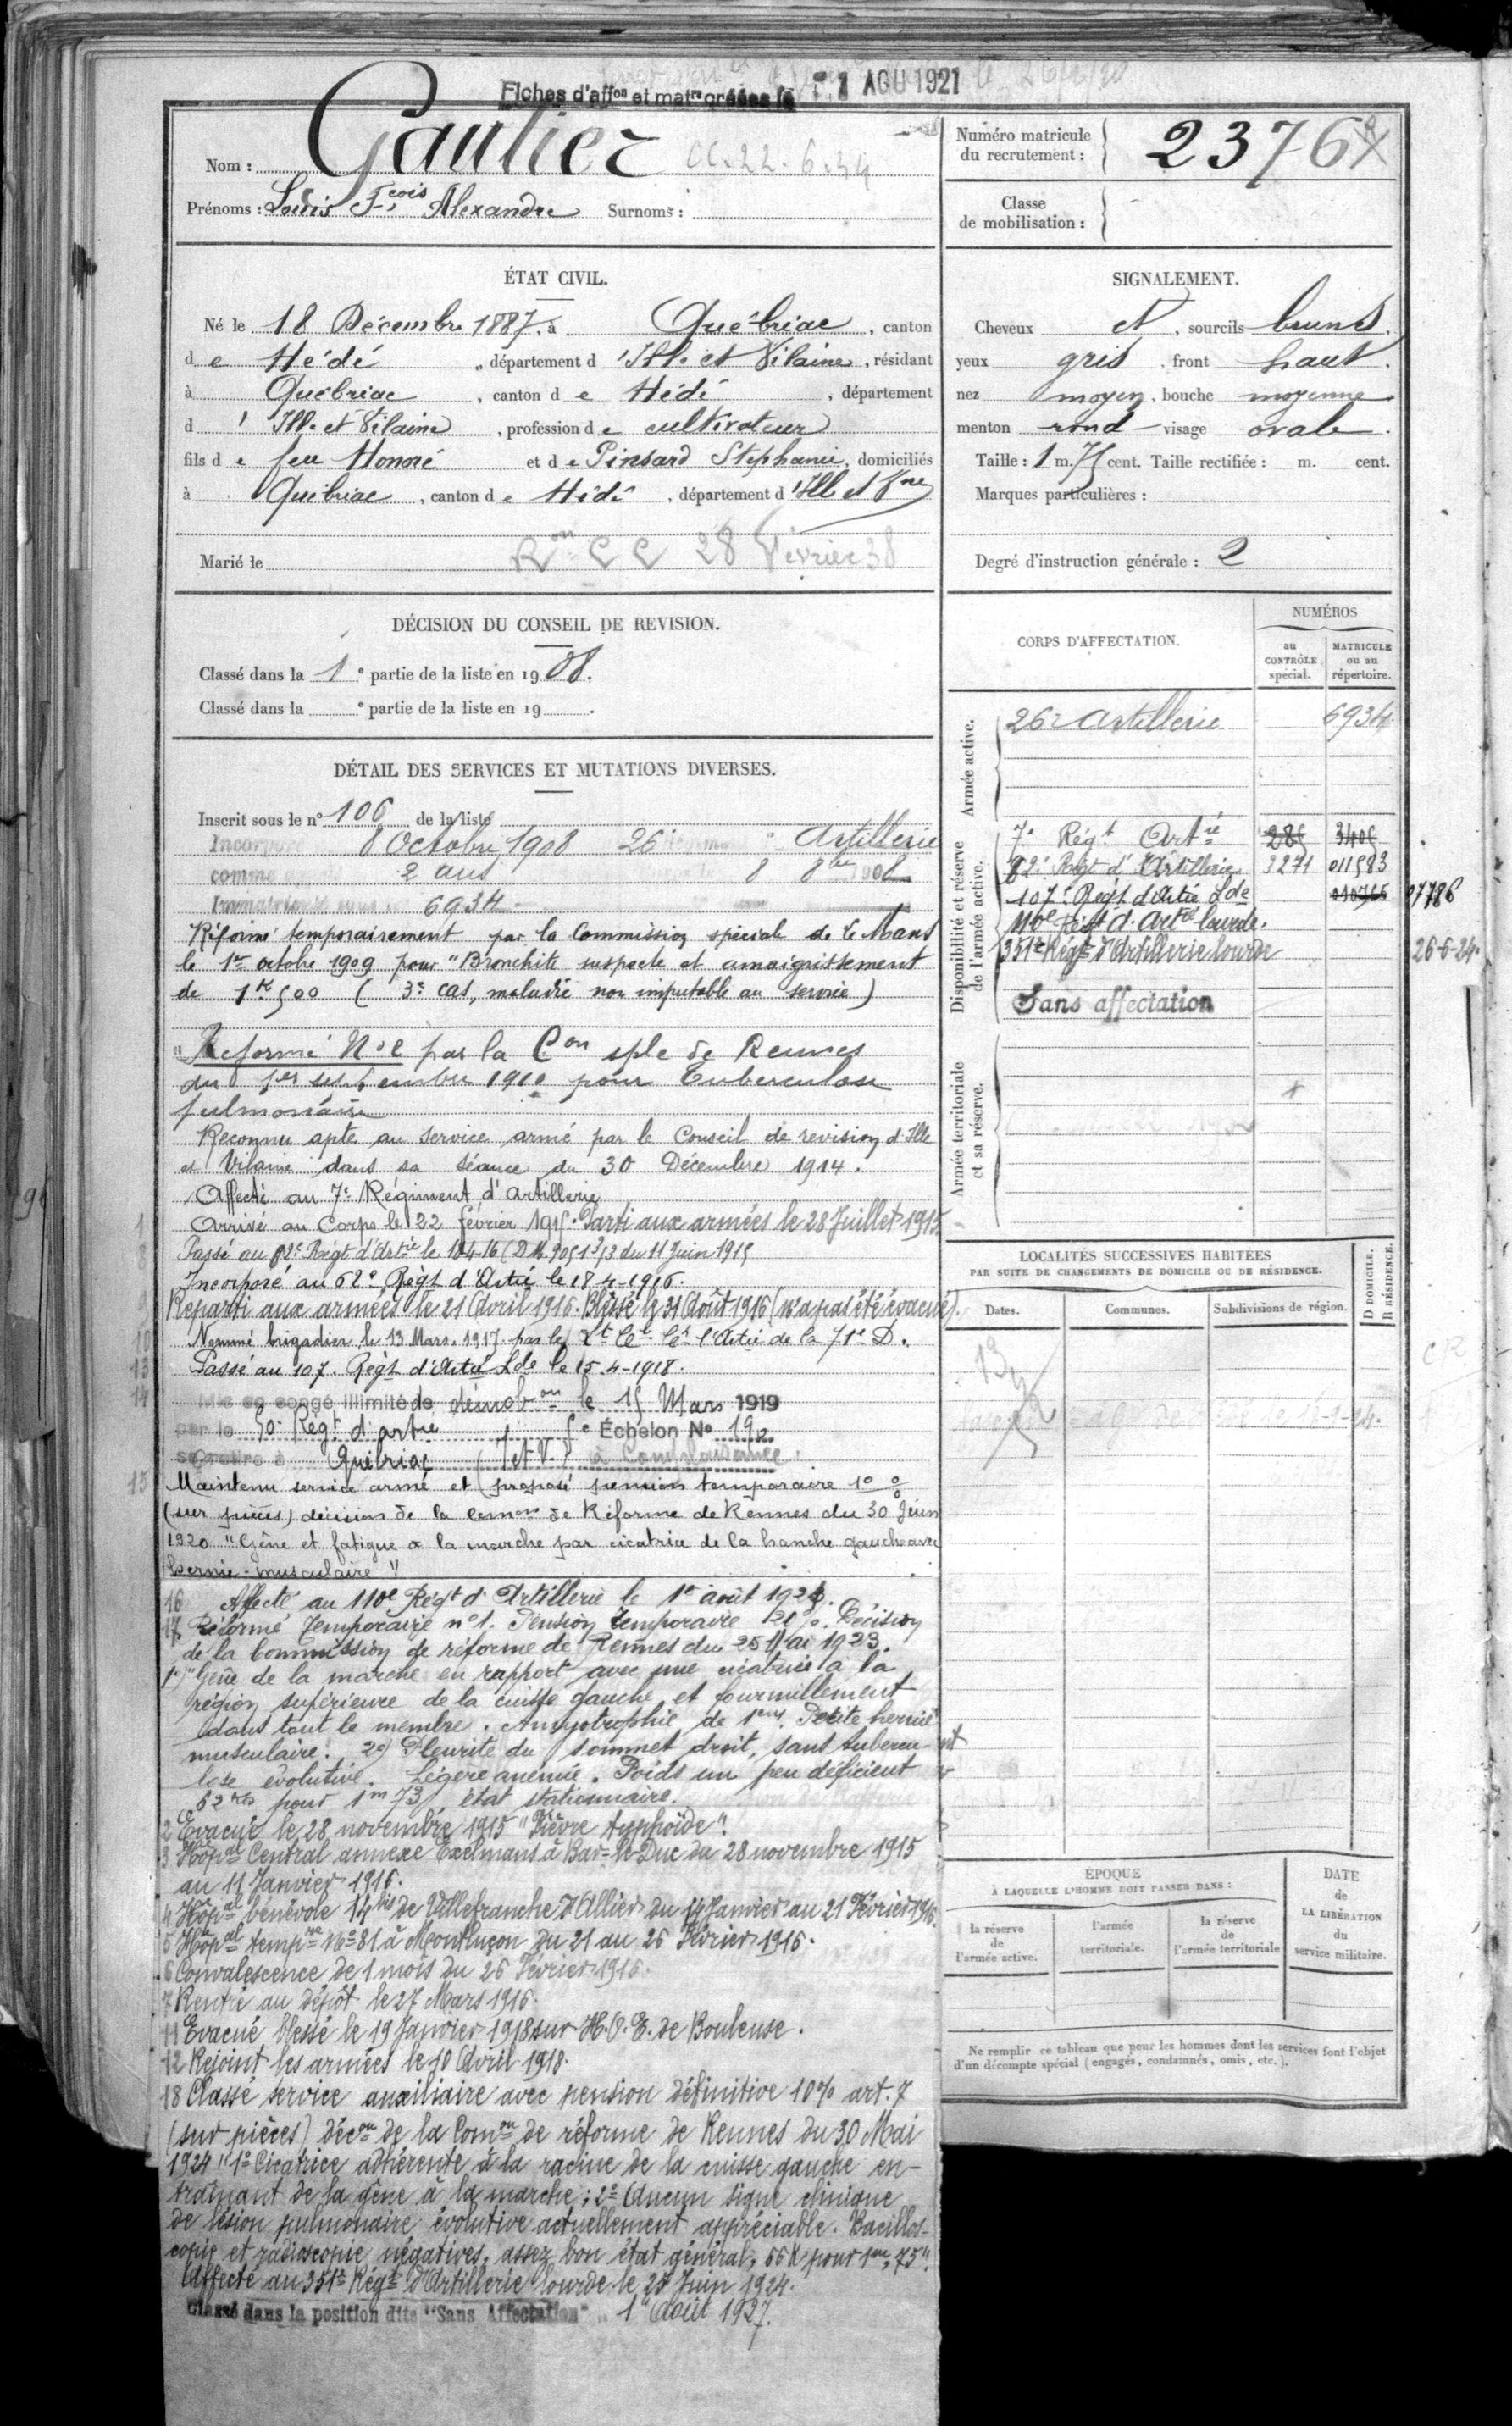 Fiches d'aff^on et mat^re créées le 1 AOU 1921
Nom : Gautier CC. 22. 6. 34
Prénoms : Louis F^cois Alexandre Surnoms :
Numéro matricule du recrutement : 2376
Classe de mobilisation :
ÉTAT CIVIL.
Né le 18 Décembre 1887, à Québriac, canton
de Hédé, département d'Ille et Vilaine, résidant
à Québriac, canton de Hédé, département
d'Ille et Vilaine, profession de cultivateur
fils de feu Honoré et de Pinsard Stéphanie, domiciliés
à Québriac, canton de Hédé, département d'Ill et V^ne
Marié le
R^on CC 28 Février 38
DÉCISION DU CONSEIL DE REVISION.
Classé dans la 1^e partie de la liste en 1908.
Classé dans la ^e partie de la liste en 19 .
DÉTAIL DES SERVICES ET MUTATIONS DIVERSES.
Inscrit sous le n° 106 de la liste
Incorporé 8 Octobre 1908 26^e Artillerie
comme 2 ans 8 8^bre 1908
Immatriculé 6934
Réformé temporairement par la Commission spéciale de Le Mans
le 1^er octobre 1909 pour "Bronchite suspecte et amaigrissement
de 1^K500 (3^e cas, maladie non imputable au service)
Réformé N°2 par la C^on sple de Rennes
du 1^er septembre 1910 pour Tuberculose
pulmonaire
Reconnu apte au service armé par le Conseil de revision d'Ille
et Vilaine dans sa séance du 30 Décembre 1914.
Affecté au 7^e Régiment d'artillerie
1 Arrivé au Corps le 22 février 1915. Parti aux armées le 28 Juillet 1915
8 Passé au 62^e Régt d'Art^ie le 18-4-16 (DM. 9051 3/3 du 11 Juin 1915
Incorporé au 62^e Régt d'Artie le 18-4-1916.
9 Reparti aux armées le 21 Avril 1916. Blessé le 31 Août 1916 (n'a pas été évacué).
10 Nommé brigadier le 13 Mars 1917 par le L^t C^el C^t l'Artie de la 71^e D.
13 Passé au 107^e Régt d'Artie L^de le 15-4-1918.
14 Mis en congé illimité de démob^on le 15 Mars 1919
par le 50^e Rég^t d'artie 5^e Échelon N° 192
se retire à Québriac (I et V.)
15 Maintenu service armé et proposé pension temporaire 10%
(sur pièces) décision de la Com^on de Réforme de Rennes du 30 Juin
1920 "Gêne et fatigue à la marche par cicatrice de la hanche gauche avec
hernie musculaire"
16 Affecté au 110^e Rég^t d'Artillerie le 1^er août 1923.
17 Réformé Temporaire n°1. Pension temporaire 20%. Décision
de la Commission de réforme de Rennes du 25 Mai 1923.
1°) "Gêne de la marche en rapport avec une cicatrice à la
région supérieure de la cuisse gauche et fourmillement
dans tout le membre. Amyotrophie de 1^cm. Petite hernie
musculaire. 2°) Pleurite du sommet droit, sans tubercu-
lose évolutive. Légère anémie. Poids un peu déficient
62^kgs pour 1^m73, état stationnaire.
2 Evacué le 28 novembre 1915 "Fièvre typhoïde".
3 Hôp^al Central annexe Exelmans à Bar-le-Duc du 28 novembre 1915
au 11 Janvier 1916.
4 Hôp^al bénévole 14^bis de Villefranche d'Allier du 14 Janvier au 21 Février 1916.
5 Hôp^al temp^re N° 81 à Montluçon du 21 au 26 Février 1916.
6 Convalescence de 1 mois du 26 Février 1916.
7 Rentré au dépôt le 27 Mars 1916.
11 Evacué blessé le 19 Janvier 1918 sur H.O.E. de Bouleuse.
12 Rejoint les armées le 10 Avril 1918.
18 Classé service auxiliaire avec pension définitive 10% art. 7
(sur pièces) déc^on de la Com^on de réforme de Rennes du 30 Mai
1924 "1° Cicatrice adhérente à la racine de la cuisse gauche en-
traînant de la gêne à la marche ; 2° Aucun signe clinique
de lésion pulmonaire évolutive actuellement appréciable. Bacillos-
copie et radioscopie négatives, assez bon état général, 66 K pour 1^m,75".
Affecté au 351^e Rég^t d'Artillerie lourde le 25 Juin 1924.
Classé dans la position dite "Sans Affectation" 1^er Août 1927.
SIGNALEMENT.
Cheveux et, sourcils bruns.
yeux gris, front haut.
nez moyen, bouche moyenne
menton rond visage ovale.
Taille : 1 m. 75 cent. Taille rectifiée : m. cent.
Marques particulières :
Degré d'instruction générale : 2
CORPS D'AFFECTATION.
NUMÉROS
au CONTRÔLE spécial.
MATRICULE ou au répertoire.
Armée active.
26^e Artillerie 6934
Disponibilité et réserve de l'armée active.
7^e Rég^t Art^ie 285 3405
62^e Régt d'Artillerie 3271 011583
107^e Régt d'Artie L^de 07786
110^e Régt d'Art^ie lourde.
351^e Rég^t d'Artillerie lourde 26-6-24.
Sans affectation
Armée territoriale et sa réserve.
LOCALITÉS SUCCESSIVES HABITÉES
PAR SUITE DE CHANGEMENTS DE DOMICILE OU DE RÉSIDENCE.
Dates.
Communes.
Subdivisions de région.
D DOMICILE.
R RÉSIDENCE.
ÉPOQUE
À LAQUELLE L'HOMME DOIT PASSER DANS :
la réserve de l'armée active.
l'armée territoriale.
la réserve de l'armée territoriale
DATE de LA LIBÉRATION du service militaire.
Ne remplir ce tableau que pour les hommes dont les services font l'objet
d'un décompte spécial (engagés, condamnés, omis, etc.).